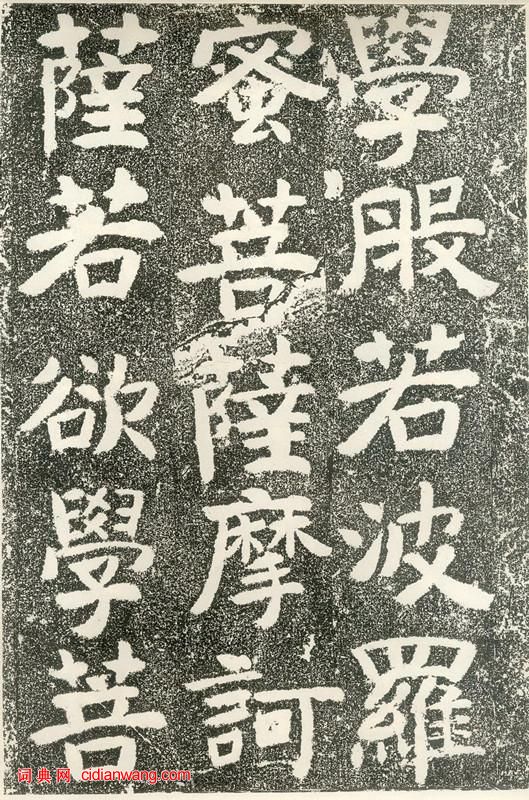 學般若波羅
蜜菩薩摩訶
薩若欲學菩
词典网 cidianwang.com